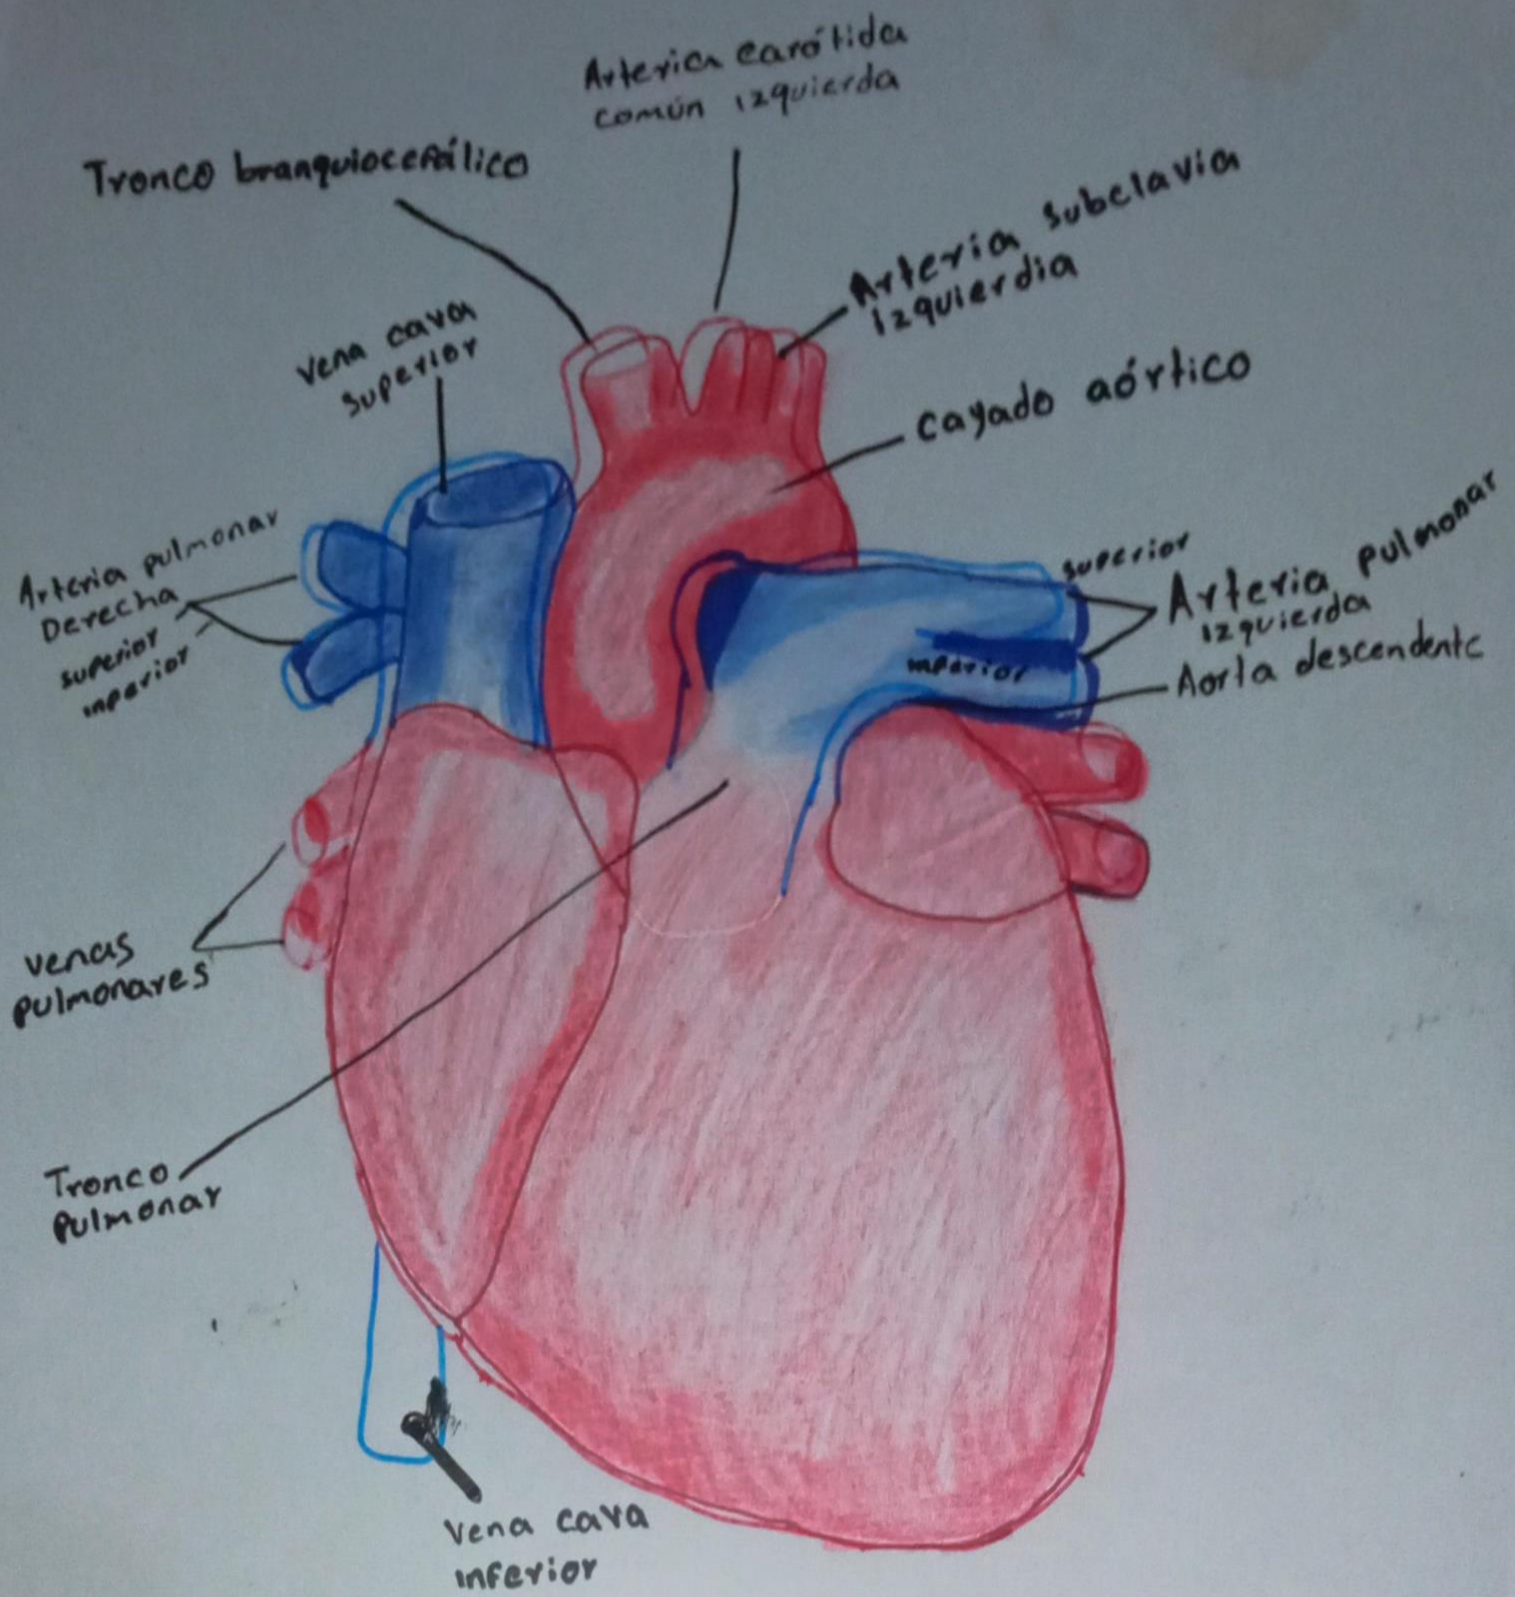 Arteria carótida
común izquierda
Tronco branquiocefálico
Arteria subclavia
izquierdia
vena cava
superior
cayado aórtico
Arteria pulmonar
Derecha
superior
inperior
superior
Arteria pulmonar
izquierda
inperior
Aorta descendente
venas
pulmonares
Tronco
pulmonar
vena cava
inferior